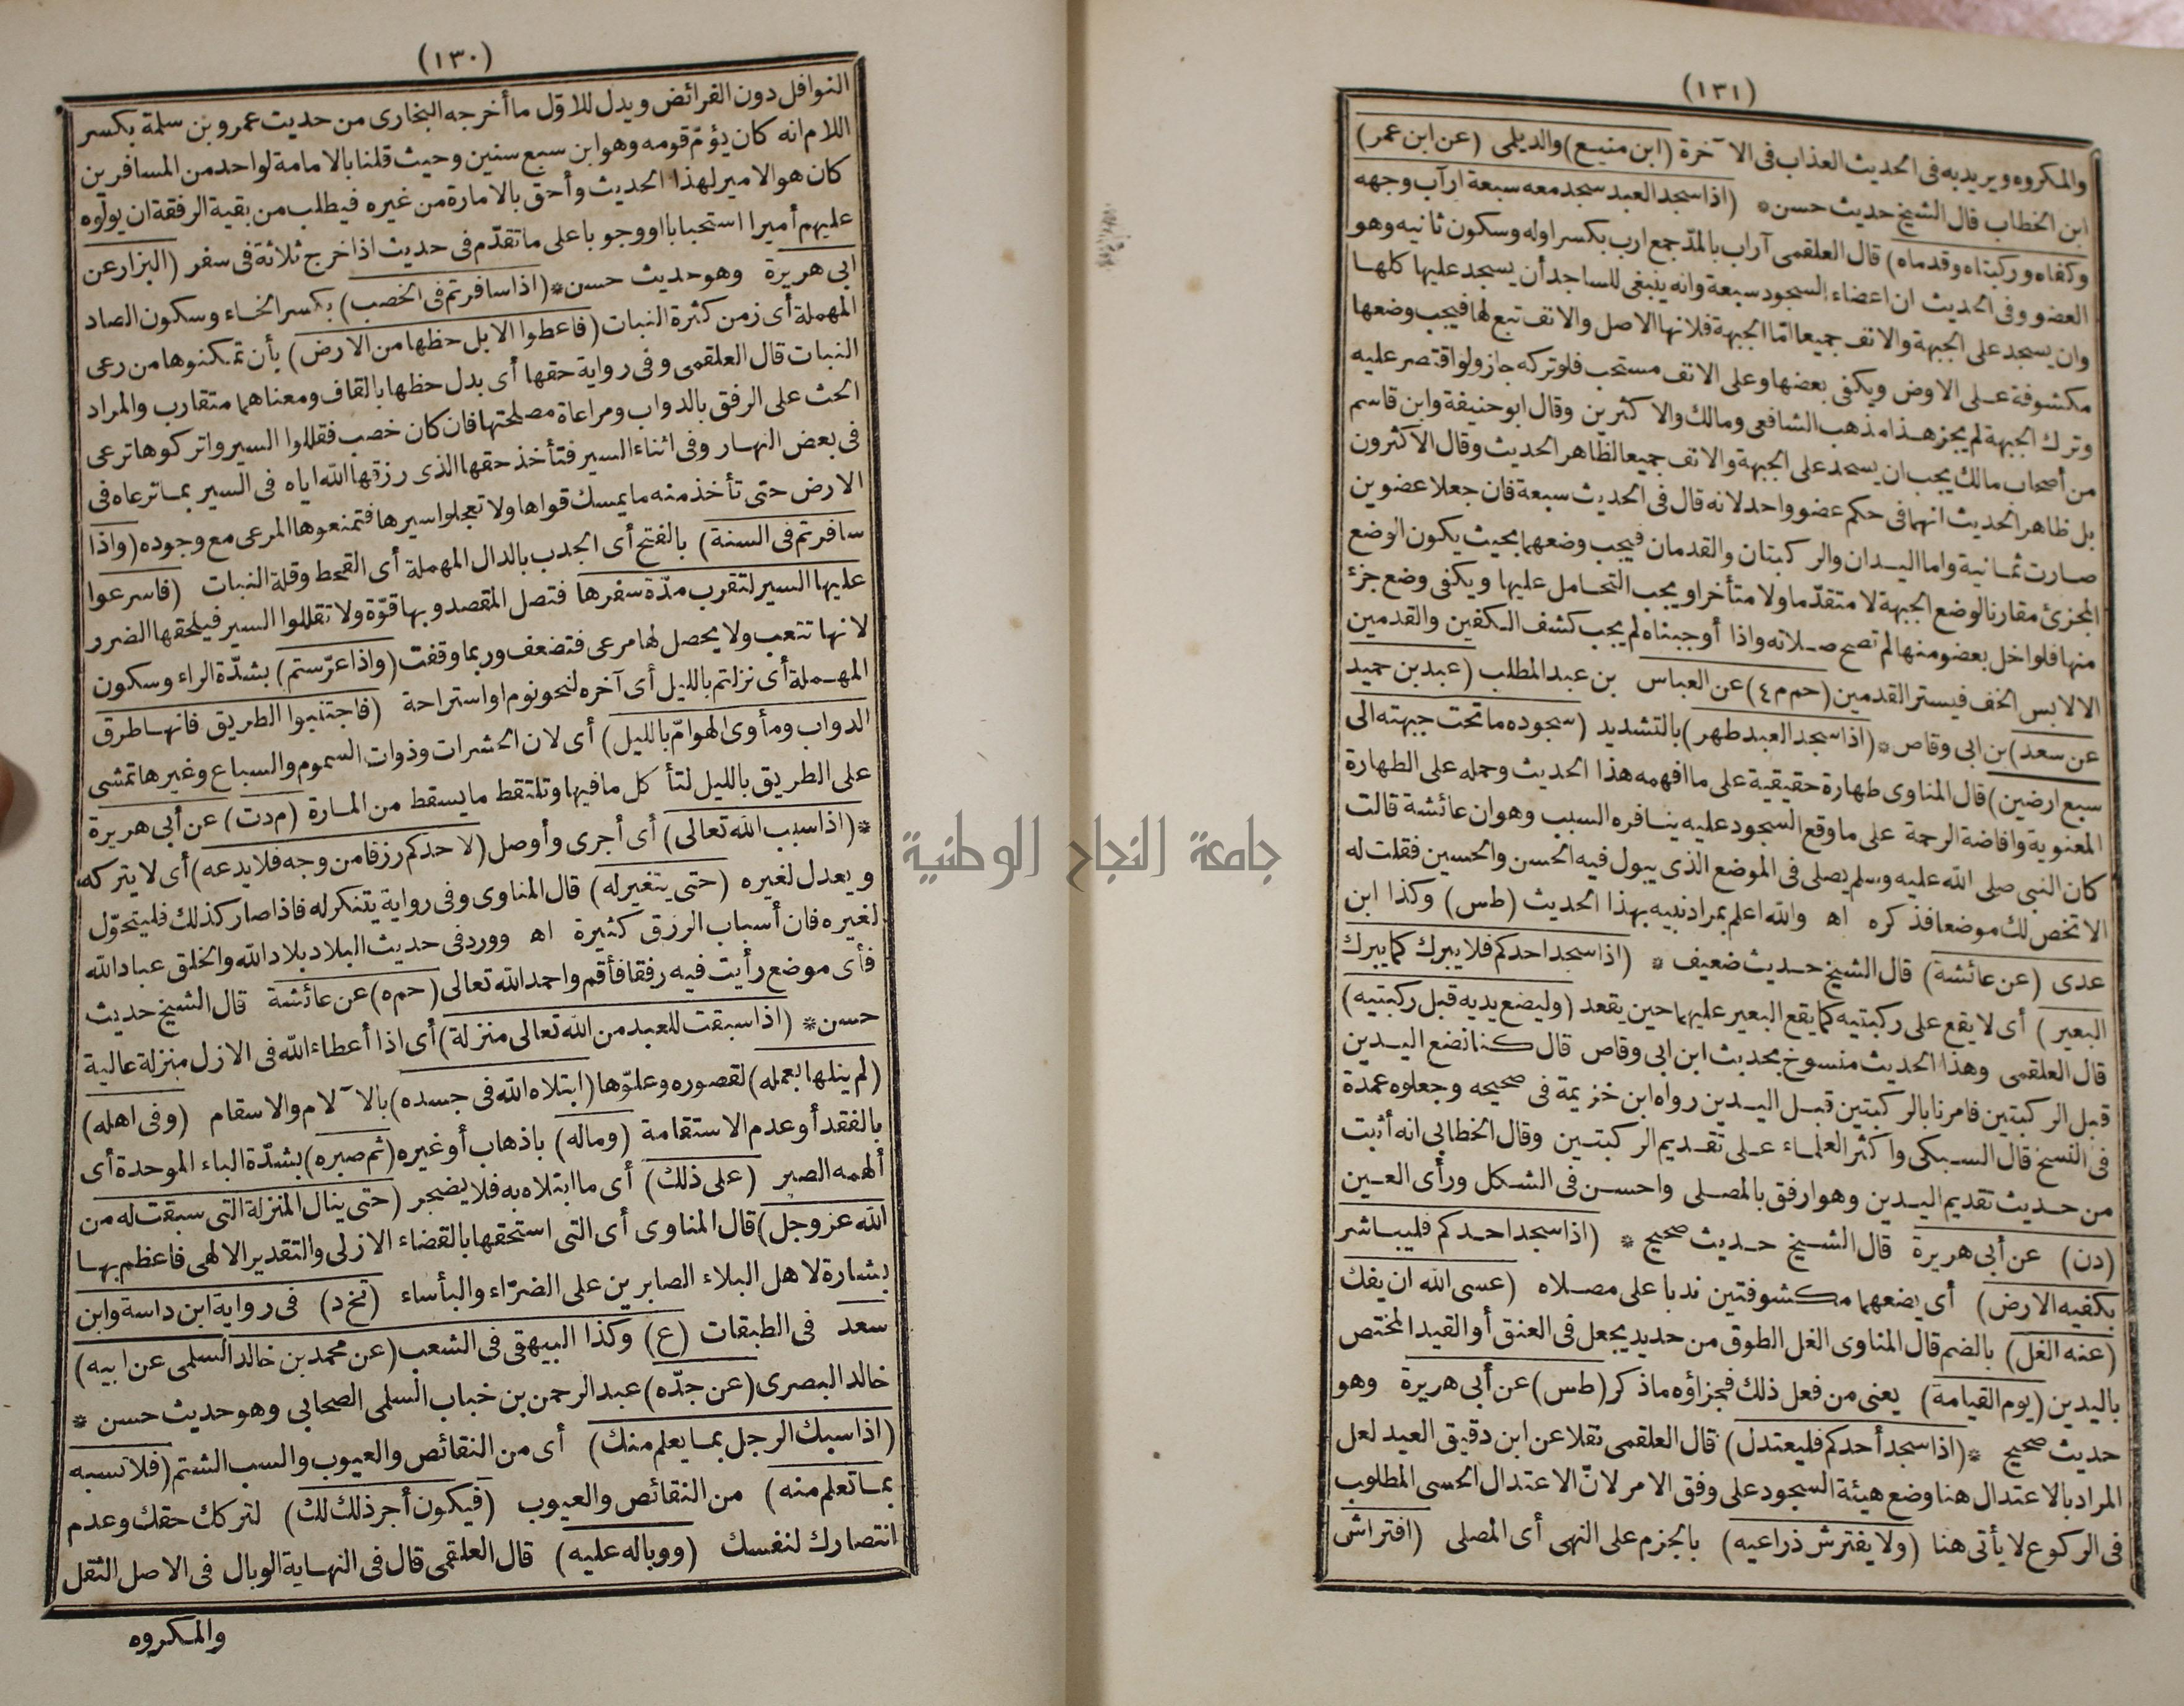 (١٣٠)
النوافل دون الفرائض ويدل للاوّل ما أخرجه البخارى من حديث عمرو بن سلمة بكسر
اللام انه كان يؤمّ قومه وهو ابن سبع سنين وحيث قلنا بالامامة لواحد من المسافرين
كان هو الامير لهذا الحديث وأحق بالامارة من غيره فيطلب من بقية الرفقة ان يولّوه
عليهم أميرا استحبابا او وجوبا على ما تقدّم فى حديث اذا خرج ثلاثة فى سفر (البزار عن
ابى هريرة وهو حديث حسن * (اذا سافرتم فى الخصب) بكسر الخاء وسكون الصاد
المهملة أى زمن كثرة النبات (فاعطوا الابل حظها من الارض) بأن تمكنوها من رعى
النبات قال العلقمى وفى رواية حقها أى بدل حظها بالقاف ومعناهما متقارب والمراد
الحث على الرفق بالدواب ومراعاة مصلحتها فان كان خصب فقللوا السير واتركوها ترعى
فى بعض النهار وفى اثناء السير فتأخذ حقها الذى رزقها الله اياه فى السير بما ترعاه فى
الارض حتى تأخذ منه ما يمسك قواها ولا تعجلوا سيرها فتمنعوها المرعى مع وجوده (واذا
سافرتم فى السنة) بالفتح أى الجدب بالدال المهملة أى القحط وقلة النبات (فاسرعوا
عليها السير لتقرب مدّة سفرها فتصل المقصد وبها قوّة ولا تقللوا السير فيلحقها الضرر
لانها تتعب ولا يحصل لها مرعى فتضعف وربما وقفت (واذا عرّستم) بشدّة الراء وسكون
المهملة أى نزلتم بالليل أى آخره لنحو نوم او استراحة (فاجتنبوا الطريق فانها طرق
الدواب ومأوى الهوامّ بالليل) أى لان الحشرات وذوات السموم والسباع وغيرها تمشى
على الطريق بالليل لتأكل ما فيها وتلتقط ما يسقط من المارة (م د ت) عن أبى هريرة
* (اذا سبب الله تعالى) أى أجرى وأوصل (لاحدكم رزقا من وجه فلا يدعه) أى لا يتركه
ويعدل لغيره (حتى يتغير له) قال المناوى وفى رواية يتنكر له فاذا صار كذلك فليتحوّل
لغيره فان أسباب الرزق كثيرة اه وورد فى حديث البلاد بلاد الله والخلق عباد الله
فأى موضع رأيت فيه رفقا فأقم واحمد الله تعالى (حم ه) عن عائشة قال الشيخ حديث
حسن * (اذا سبقت للعبد من الله تعالى منزلة) أى اذا أعطاه الله فى الازل منزلة عالية
(لم ينلها بعمله) لقصوره وعلوّها (ابتلاه الله فى جسده) بالآلام والاسقام (وفى اهله)
بالفقد أو عدم الاستقامة (وماله) باذهاب أو غيره (ثم صبره) بشدّة الباء الموحدة أى
ألهمه الصبر (على ذلك) أى ما ابتلاه به فلا يضجر (حتى ينال المنزلة التى سبقت له من
الله عز وجل) قال المناوى أى التى استحقها بالقضاء الازلى والتقدير الالهى فاعظم بها
بشارة لاهل البلاء الصابرين على الضرّاء والبأساء (تخ د) فى رواية ابن داسة وابن
سعد فى الطبقات (ع) وكذا البيهقى فى الشعب (عن محمد بن خالد السلمى عن ابيه)
خالد البصرى (عن جدّه) عبد الرحمن بن خباب السلمى الصحابى وهو حديث حسن *
(اذا سبك الرجل بما يعلم منك) أى من النقائص والعيوب والسب الشتم (فلا تسبه
بما تعلم منه) من النقائص والعيوب (فيكون أجر ذلك لك) لتركك حقك وعدم
انتصارك لنفسك (ووباله عليه) قال العلقمى قال فى النهاية الوبال فى الاصل الثقل
والمكروه
(١٣١)
والمكروه ويريد به فى الحديث العذاب فى الآخرة (ابن منيع) والديلمى (عن ابن عمر)
ابن الخطاب قال الشيخ حديث حسن * (اذا سجد العبد سجد معه سبعة ارآب وجهه
وكفاه وركبتاه وقدماه) قال العلقمى آراب بالمدّ جمع ارب بكسر اوله وسكون ثانيه وهو
العضو وفى الحديث ان اعضاء السجود سبعة وانه ينبغى للساجد أن يسجد عليها كلها
وان يسجد على الجبهة والانف جميعا امّا الجبهة فلانها الاصل والانف تبع لها فيجب وضعها
مكشوفة على الاوض ويكفى بعضها وعلى الانف مستحب فلو تركه جاز ولو اقتصر عليه
وترك الجبهة لم يجز هذا مذهب الشافعى ومالك والاكثرين وقال ابو حنيفة وابن قاسم
من أصحاب مالك يجب ان يسجد على الجبهة والانف جميعا لظاهر الحديث وقال الاكثرون
بل ظاهر الحديث انهما فى حكم عضو واحد لانه قال فى الحديث سبعة فان جعلا عضوين
صارت ثمانية واما اليدان والركبتان والقدمان فيجب وضعهما بحيث يكون الوضع
المجزئ مقارنا لوضع الجبهة لا متقدّما ولا متأخرا ويجب التحامل عليها ويكفى وضع جزئ
منها فلو اخل بعضو منها لم تصح صلاته واذا أوجبناه لم يجب كشف الكفين والقدمين
الا لابس الخف فيستر القدمين (حم م ٤) عن العباس بن عبد المطلب (عبد بن حميد
عن سعد) بن ابى وقاص * (اذا سجد العبد طهر) بالتشديد (سجوده ما تحت جبهته الى
سبع ارضين) قال المناوى طهارة حقيقية على ما افهمه هذا الحديث وحمله على الطهارة
المعنوية وافاضة الرحمة على ما وقع السجود عليه ينافره السبب وهو ان عائشة قالت
كان النبى صلى الله عليه وسلم يصلى فى الموضع الذى يبول فيه الحسن والحسين فقلت له
الا تخص لك موضعا فذكره اه والله اعلم بمراد نبيه بهذا الحديث (طس) وكذا ابن
عدى (عن عائشة) قال الشيخ حديث ضعيف * (اذا سجد احدكم فلا يبرك كما يبرك
البعير) أى لا يقع على ركبتيه كما يقع البعير عليهما حين يقعد (وليضع يديه قبل ركبتيه)
قال العلقمى وهذا الحديث منسوخ بحديث ابن ابى وقاص قال كنا نضع اليدين
قبل الركبتين فامرنا بالركبتين قبل اليدين رواه ابن خزيمة فى صحيحه وجعلوه عمدة
فى النسخ قال السبكى واكثر العلماء على تقديم الركبتين وقال الخطابى انه أثبت
من حديث تقديم اليدين وهو ارفق بالمصلى واحسن فى الشكل ورأى العين
(د ن) عن أبى هريرة قال الشيخ حديث صحيح * (اذا سجد احدكم فليباشر
بكفيه الارض) أى يضعهما مكشوفتين ندبا على مصلاه (عسى الله ان يفك
(عنه الغل) بالضم قال المناوى الغل الطوق من حديد يجعل فى العنق أو القيد المختص
باليدين (يوم القيامة) يعنى من فعل ذلك فجزاؤه ما ذكر (طس) عن أبى هريرة وهو
حديث صحيح * (اذا سجد أحدكم فليعتدل) قال العلقمى نقلا عن ابن دقيق العيد لعل
المراد بالاعتدال هنا وضع هيئة السجود على وفق الامر لانّ الاعتدال الحسى المطلوب
فى الركوع لا يأتى هنا (ولا يفترش ذراعيه) بالجزم على النهى أى المصلى (افتراش
جامعة النجاح الوطنية